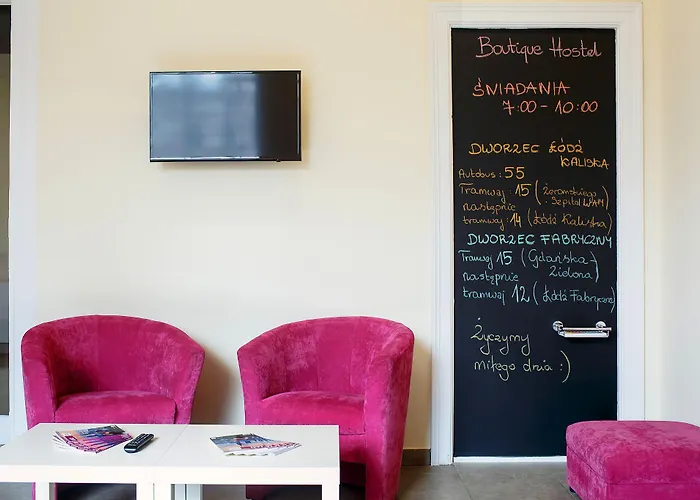 Boutique Hostel
ŚNIADANIA
7:00 - 10:00
DWORZEC ŁÓDŹ
KALISKA
Autobus: 55
Tramwaj: 15 (Żeromskiego
- Szpital WAM)
następnie
tramwaj: 14 (Łódź Kaliska)
DWORZEC FABRYCZNY
Tramwaj 15 (Gdańska-
Zielona)
następnie
tramwaj 12 (Łódź Fabryczna)
Życzymy
miłego dnia :)